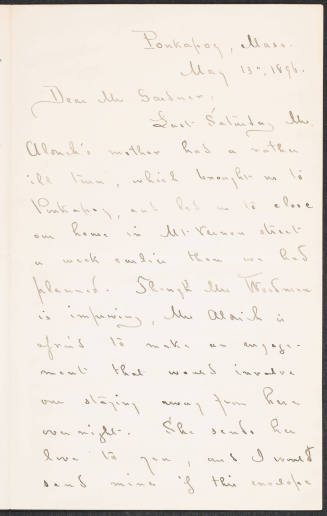 Ponkapog, Mass.
May 13th, 1896.
Dear Mrs Gardner;
Last Saturday Mrs.
Aldrich's mother had a rather
ill turn, which brought us to
Ponkapog, and led us to close
our home in Mt. Vernon street
a week earlier than we had
planned. Though Mrs Woodman
is improving, Mrs Aldrich is
afraid to make an engage-
ment that would involve
our staying away from here
over night. She sends her
love to you, and I would
send mine if this envelope